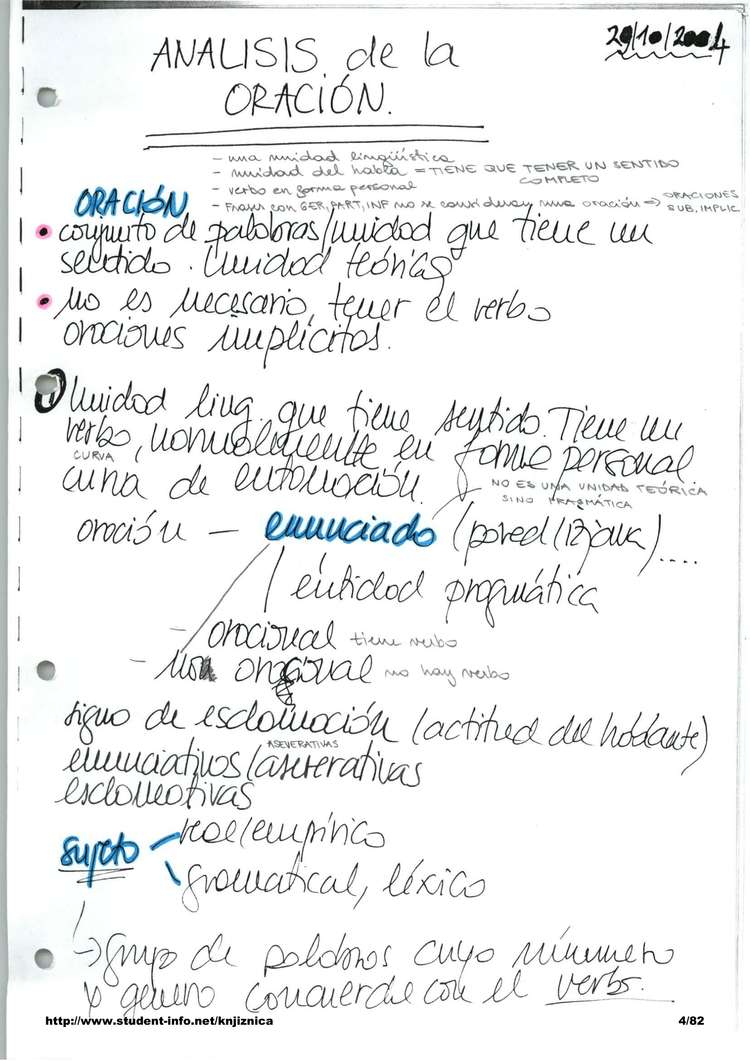 29/10/2004
ANALISIS de la
ORACIÓN.
- una unidad lingüística
- unidad del habla = TIENE QUE TENER UN SENTIDO
COMPLETO
- verbo en forma personal
- Frases con GER, PART, INF no se consideran una oración => ORACIONES
SUB, IMPLIC
ORACIÓN
• conjunto de palabras/unidad que tiene un
sentido. Unidad teórica
• no es necesario, tener el verbo
oraciones implícitas.
Unidad ling. que tiene sentido. Tiene un
verbo, normalmente en forma personal
CURVA
curva de entonación.
NO ES UNA UNIDAD TEÓRICA
SINO PRAGMÁTICA
oración - enunciado (pored/izjava)....
entidad pragmática
- oracional tiene verbo
- no oracional no hay verbo
signo de esclamación (actitud del hablante)
ASEVERATIVAS
enunciativos/aseverativas
esclamativas
sujeto
real/empírico
gramatical, léxico
-> grupo de palabras cuyo número
y género concuerda con el verbo.
http://www.student-info.net/knjiznica
4/82